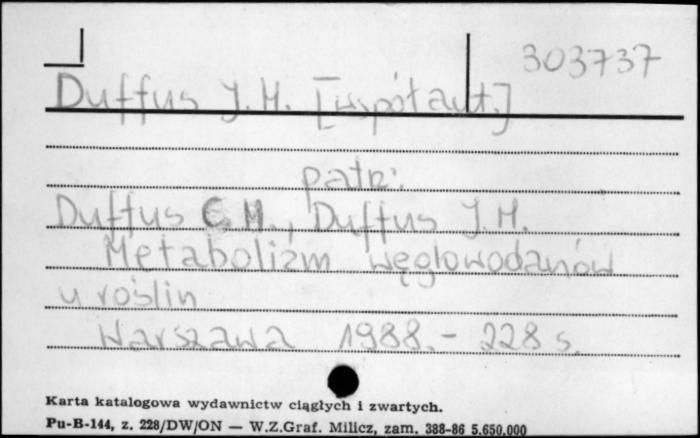 303737
Duffus J. H. [współaut.]
patrz:
Duffus C. M., Duffus J. H.
Metabolizm węglowodanów
u roślin
Warszawa 1988. - 228 s.
Karta katalogowa wydawnictw ciągłych i zwartych.
Pu-B-144, z. 228/DW/ON — W.Z.Graf. Milicz, zam. 388-86 5.650.000